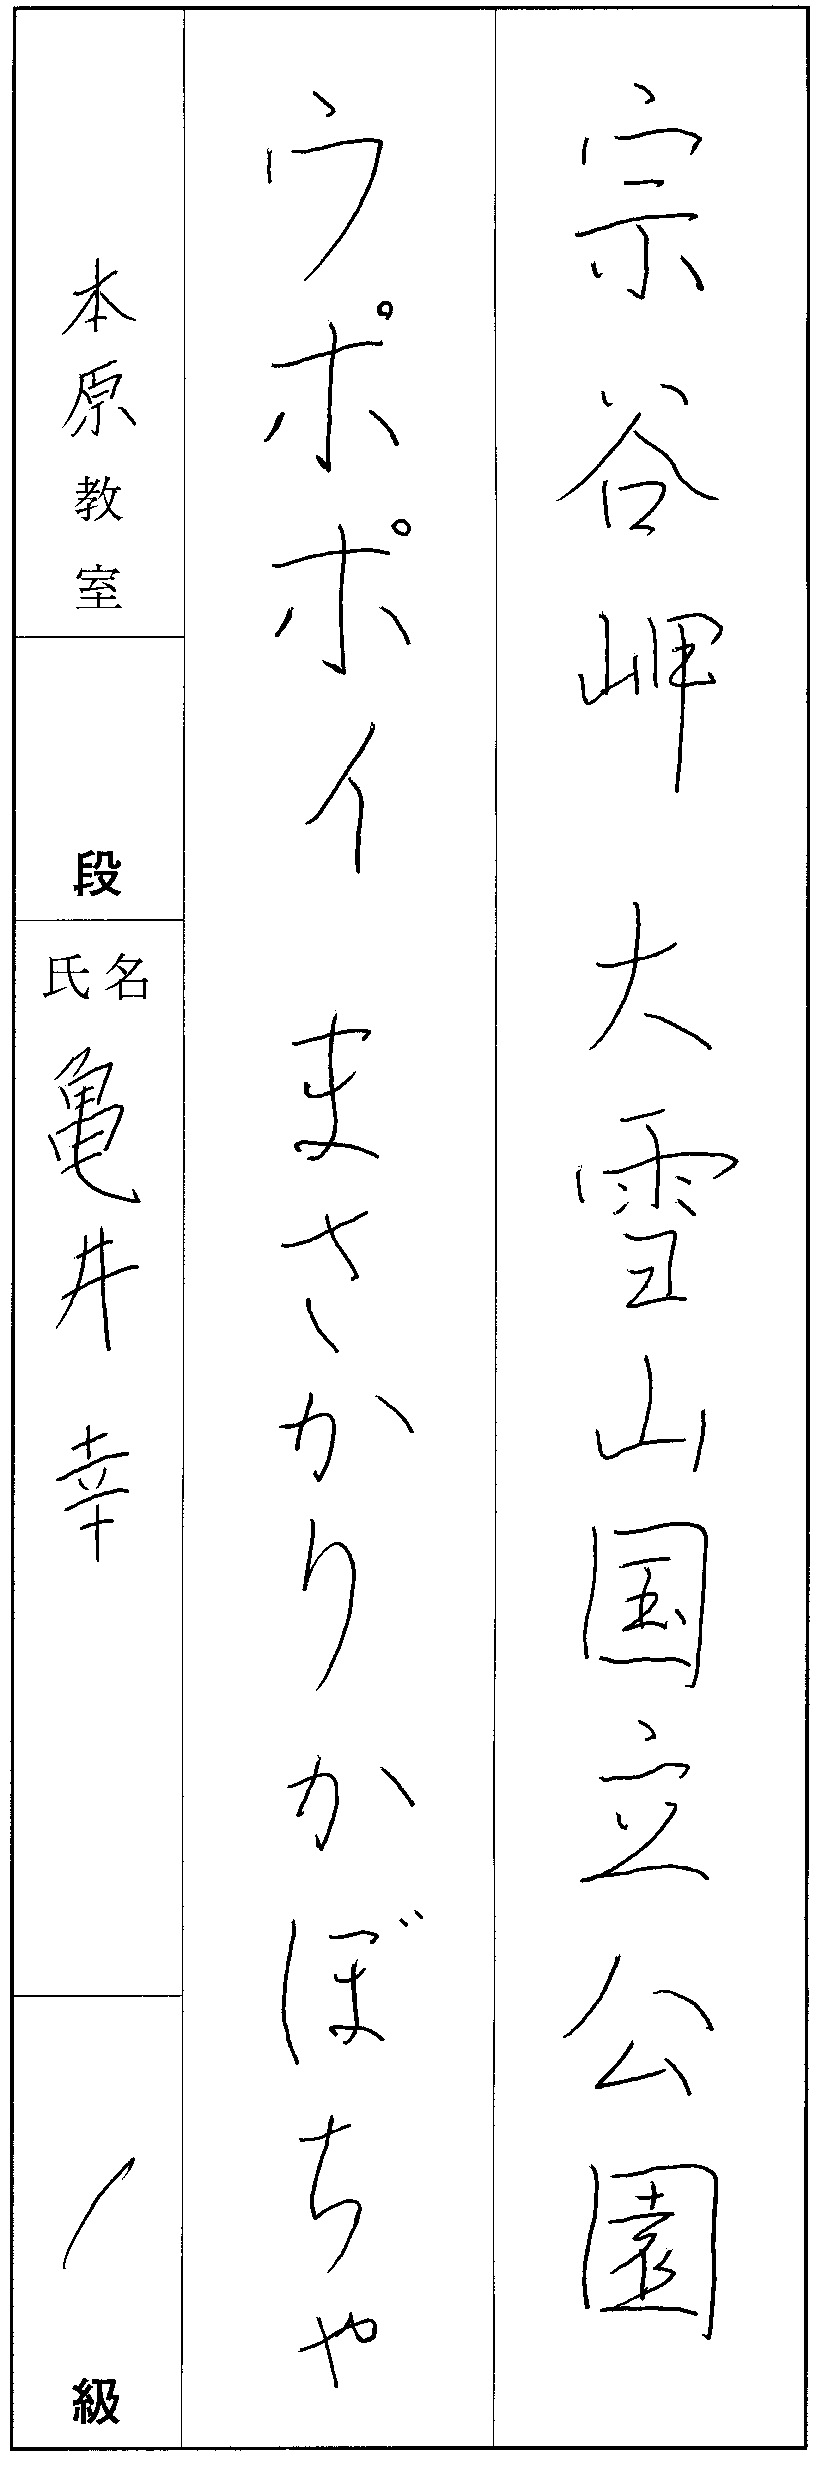 宗谷岬 大雪山国立公園
ウポポイ まさかりかぼちゃ
本原教室
段
氏名
亀井 幸
1
級